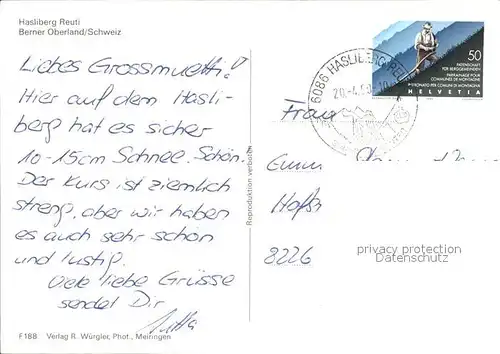 Hasliberg Reuti
Berner Oberland/Schweiz
Liebes Grossmuetti!
Hier auf dem Hasli-
berg hat es sicher
10-15cm Schnee. Schön.
Der Kurs ist ziemlich
streng, aber wir haben
es auch sehr schön
und lustig.
Viele liebe Grüsse
sendet Dir
F188 Verlag R. Würgler, Phot., Meiringen
Reproduktion verboten
6086 HASLIBERG REUTI
50
PATENSCHAFT
FÜR BERGGEMEINDEN
PARRAINAGE POUR
COMMUNES DE MONTAGNE
PATRONATO PER COMUNI DI MONTAGNA
HELVETIA
Frau
8226
privacy protection
Datenschutz